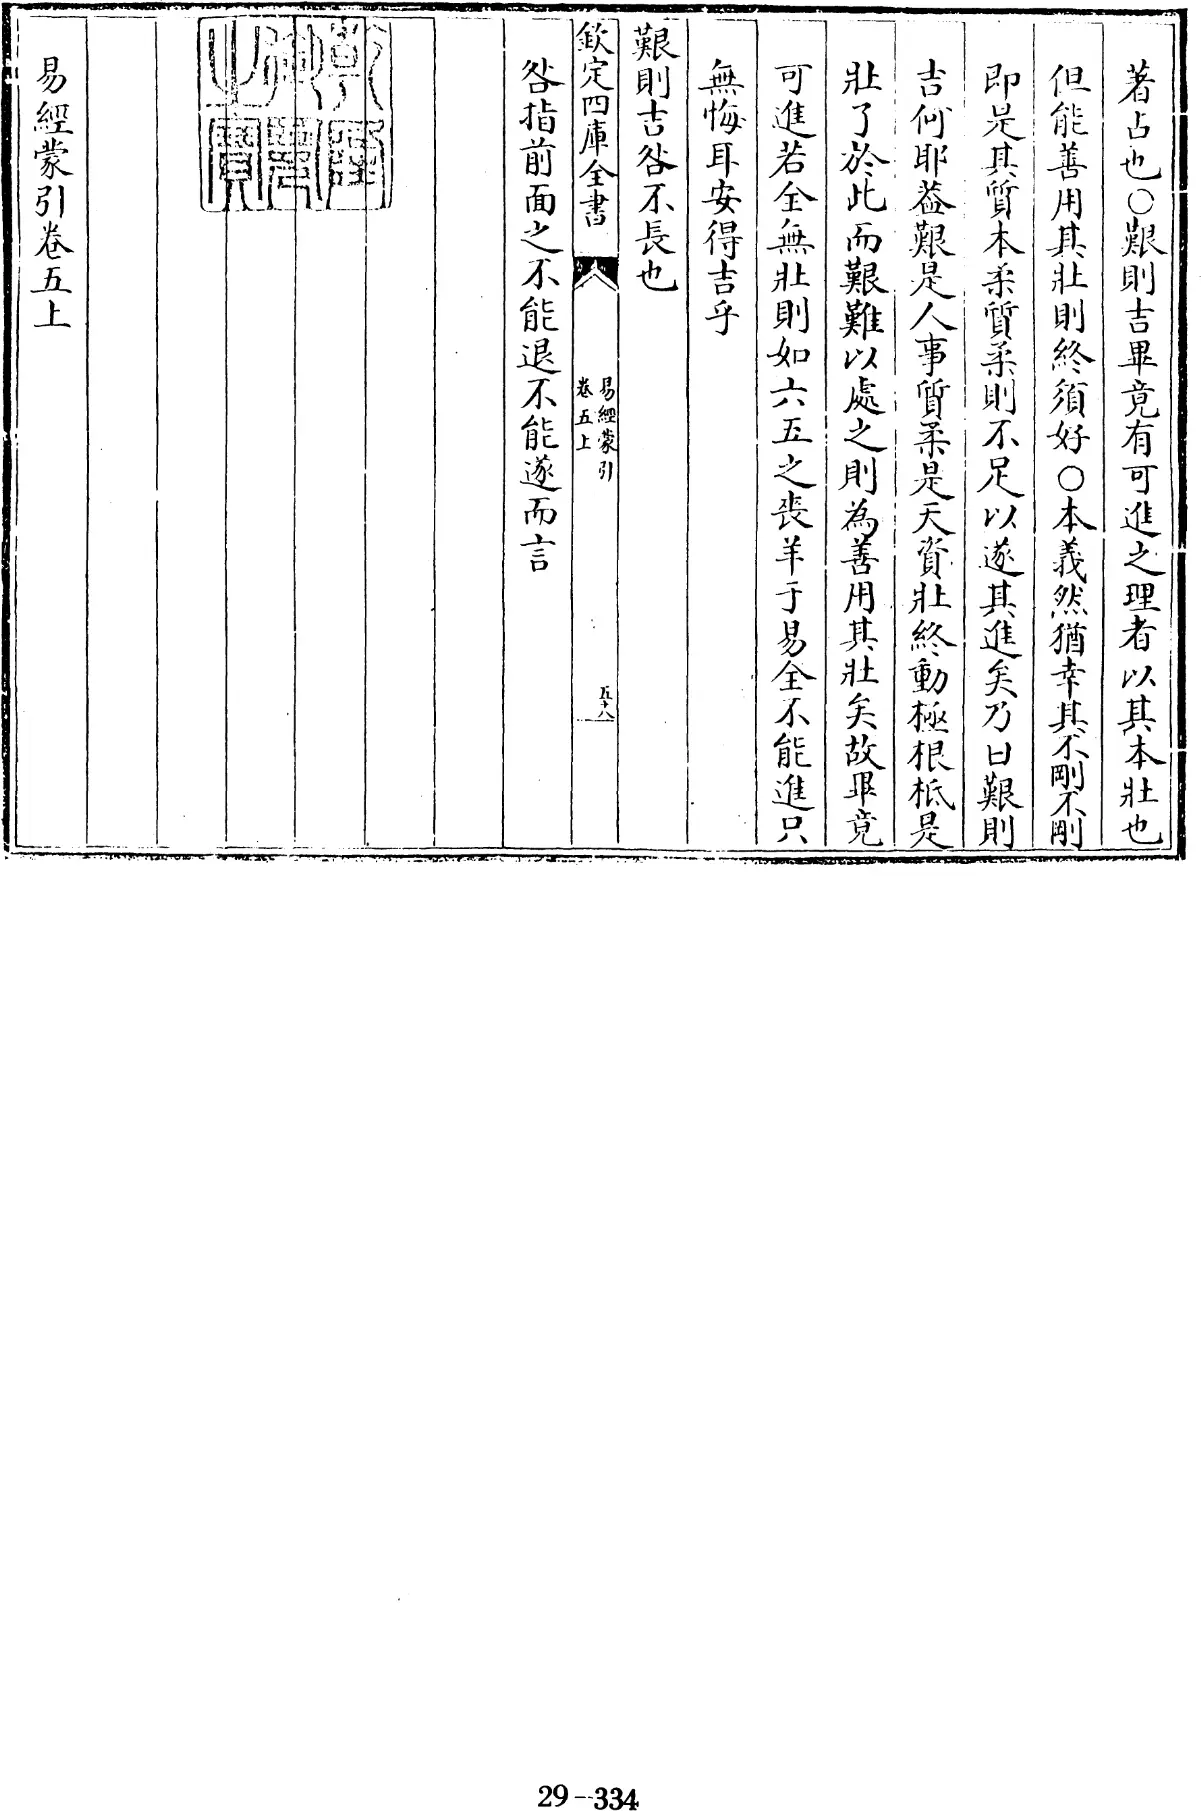 著占也○艱則吉畢竟有可進之理者以其本壯也
但能善用其壯則終須好○本義然猶幸其不剛不剛
即是其質本柔質柔則不足以遂其進矣乃曰艱則
吉何耶葢艱是人事質柔是天資壯終動極根柢是
壯了於此而艱難以處之則為善用其壯矣故畢竟
可進若全無壯則如六五之喪羊于易全不能進只
無悔耳安得吉乎
艱則吉咎不長也
欽定四庫全書
易經蒙引
卷五上
五十八
咎指前面之不能退不能遂而言
易經蒙引卷五上
29-334